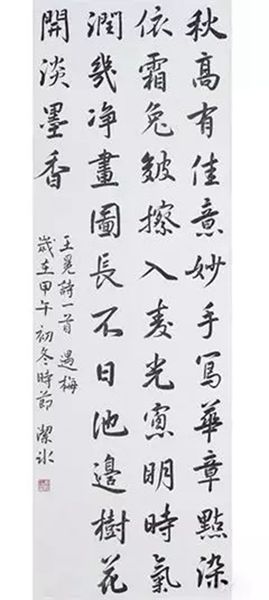 秋高有佳意妙手寫華章點染
依霜兔皴擦入麦光窻明時氣
潤幾净畫圖長不日池邊樹花
開淡墨香
王冕詩一首 遇梅
歲在甲午初冬時節 潔冰